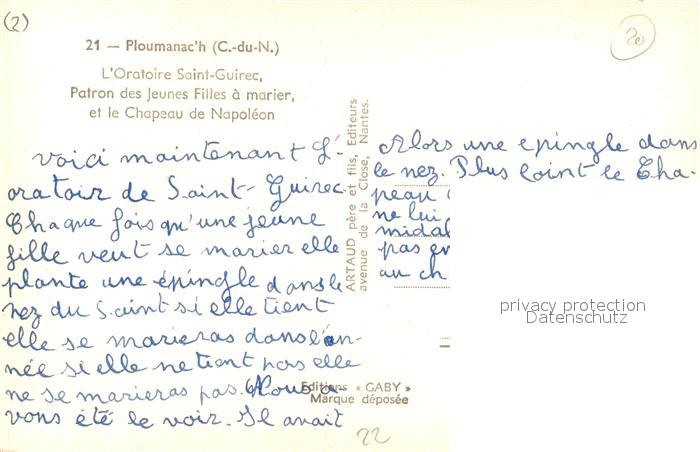 (2)
20
21 — Ploumanac'h (C.-du-N.)
L'Oratoire Saint-Guirec,
Patron des Jeunes Filles à marier,
et le Chapeau de Napoléon
Voici maintenant L'-
oratoir de Saint-Guirec
Chaque fois qu'une jeune
fille veut se marier elle
plante une épingle dans le
nez du Saint si elle tient
elle se marieras dans l'an-
née si elle ne tient pas elle
ne se marieras pas. Nous a-
vons été le voir. Il avait
ARTAUD père et fils, Editeurs
avenue de la Close, Nantes.
Alors une epingle dans
le nez. Plus loint le Cha-
peau
ne lui
midal
pas
au ch
privacy protection
Datenschutz
Editions « GABY »
Marque déposée
22